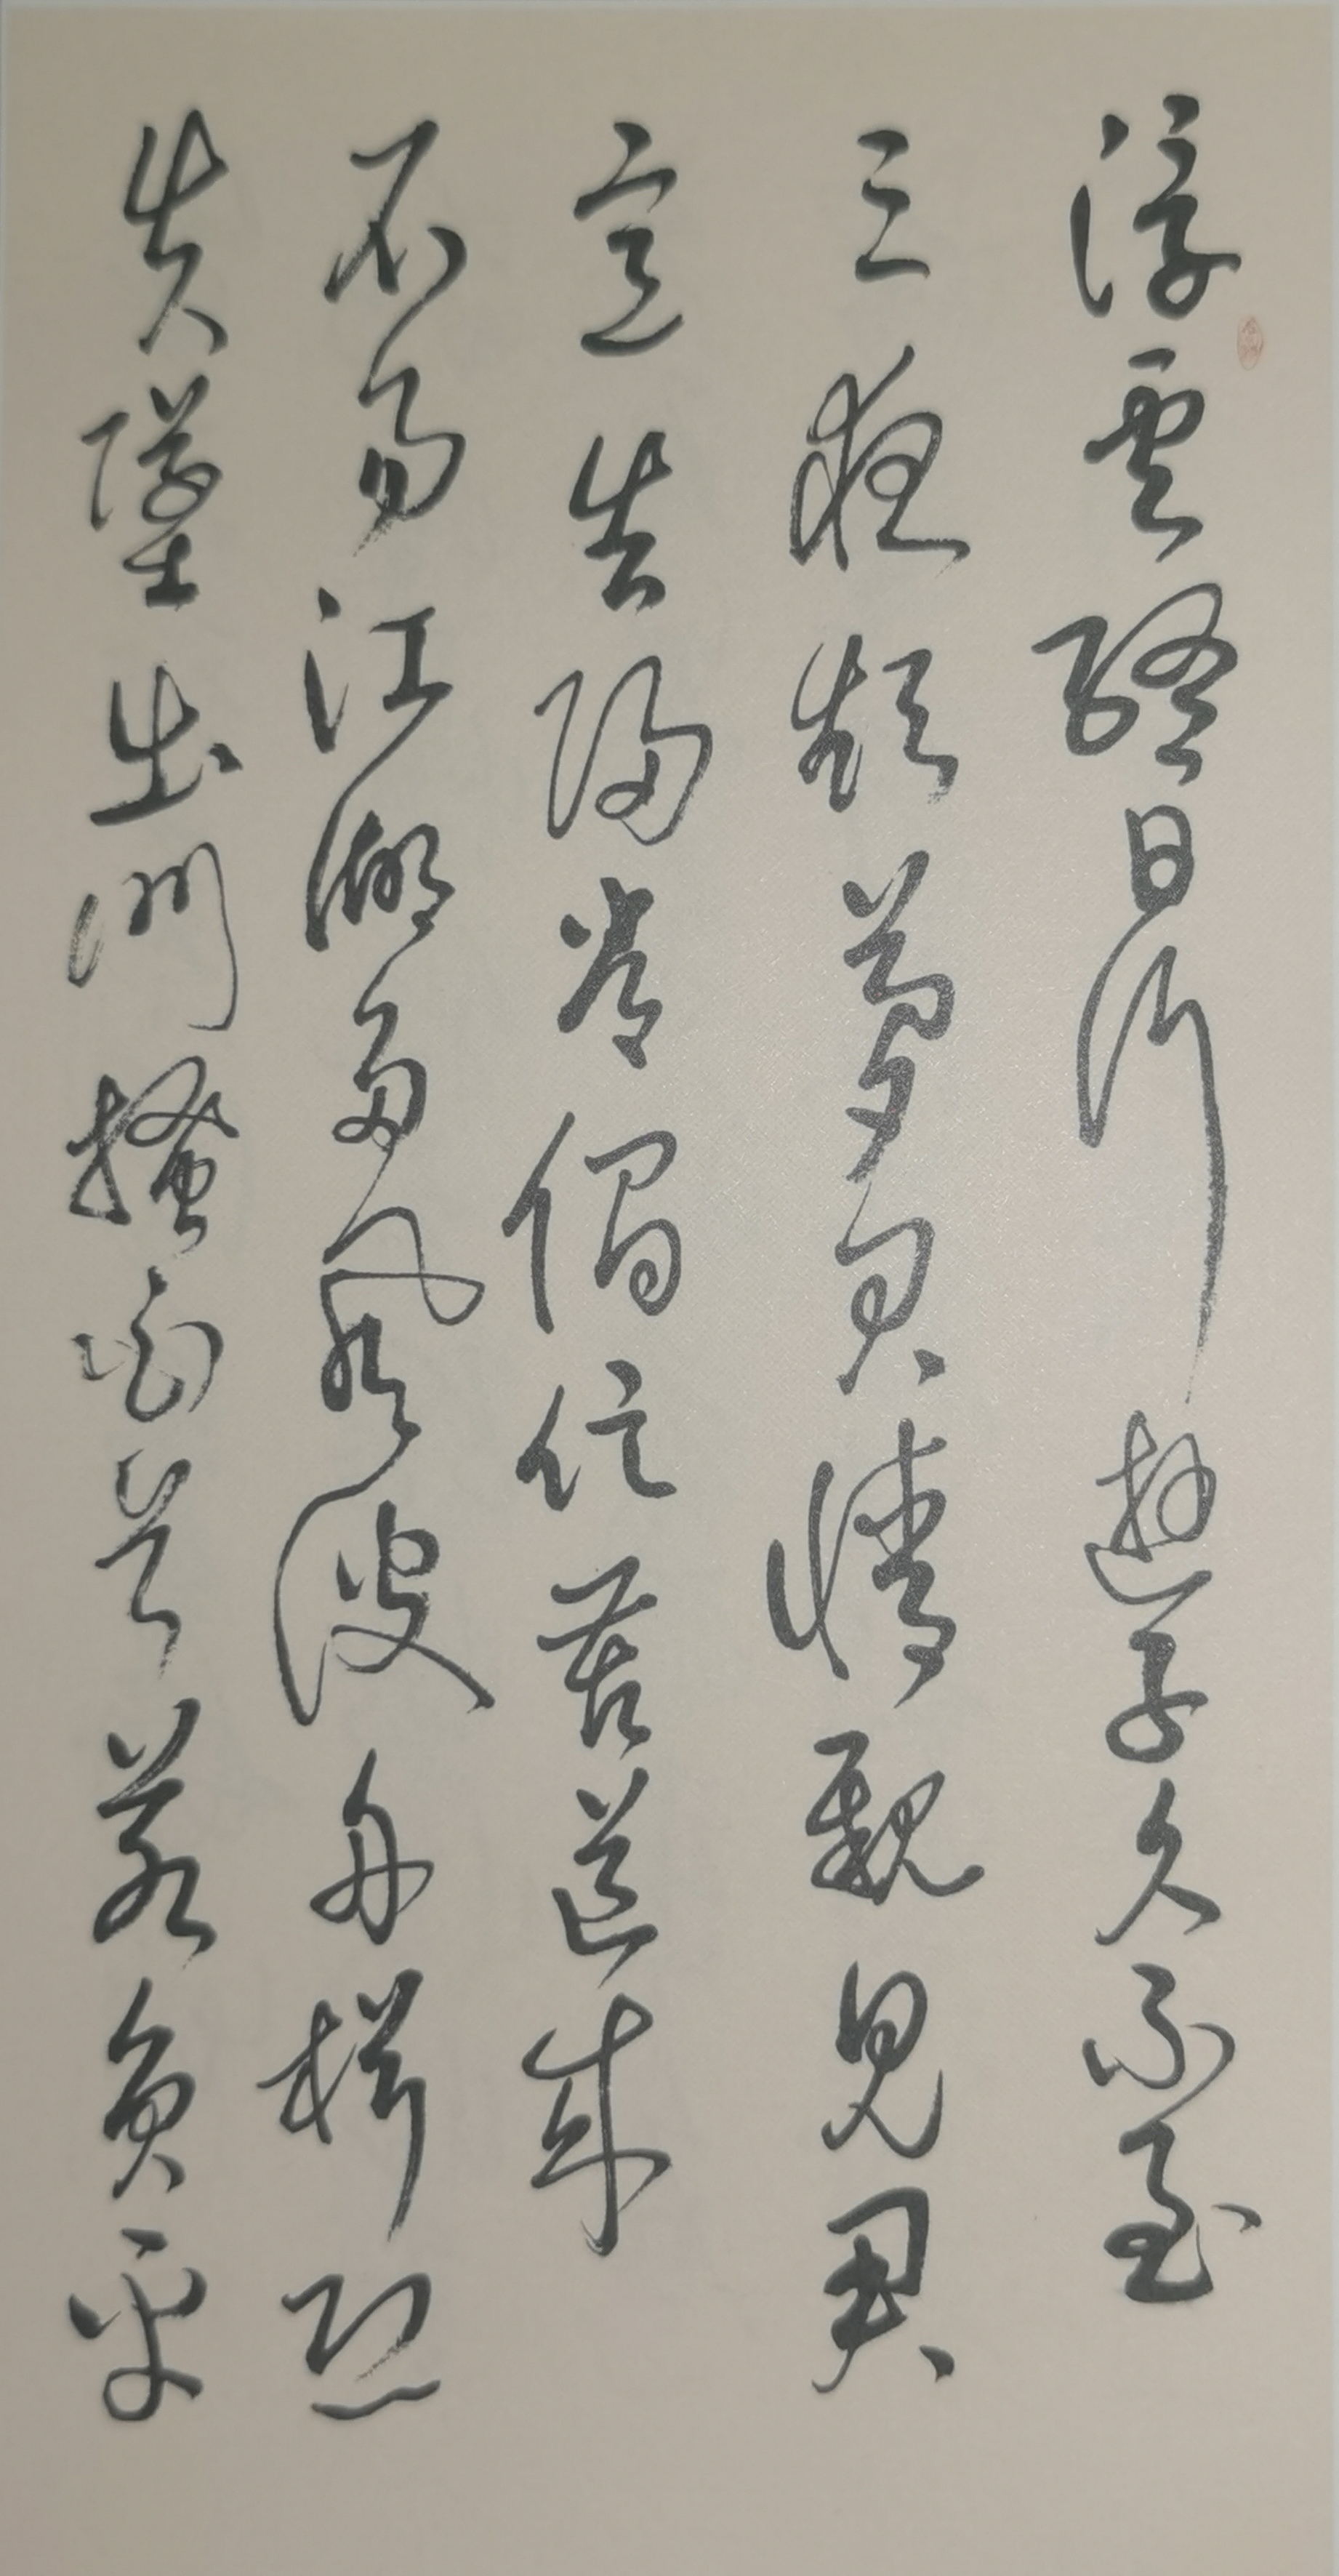 浮雲終日行遊子久不至
三夜頻夢君情親見君
意告歸常侷促苦道來
不易江湖多風波舟楫恐
失墜出門搔白首若負平